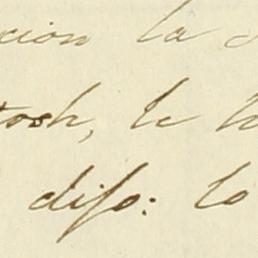 cion la
tosh, le
dijo: lo